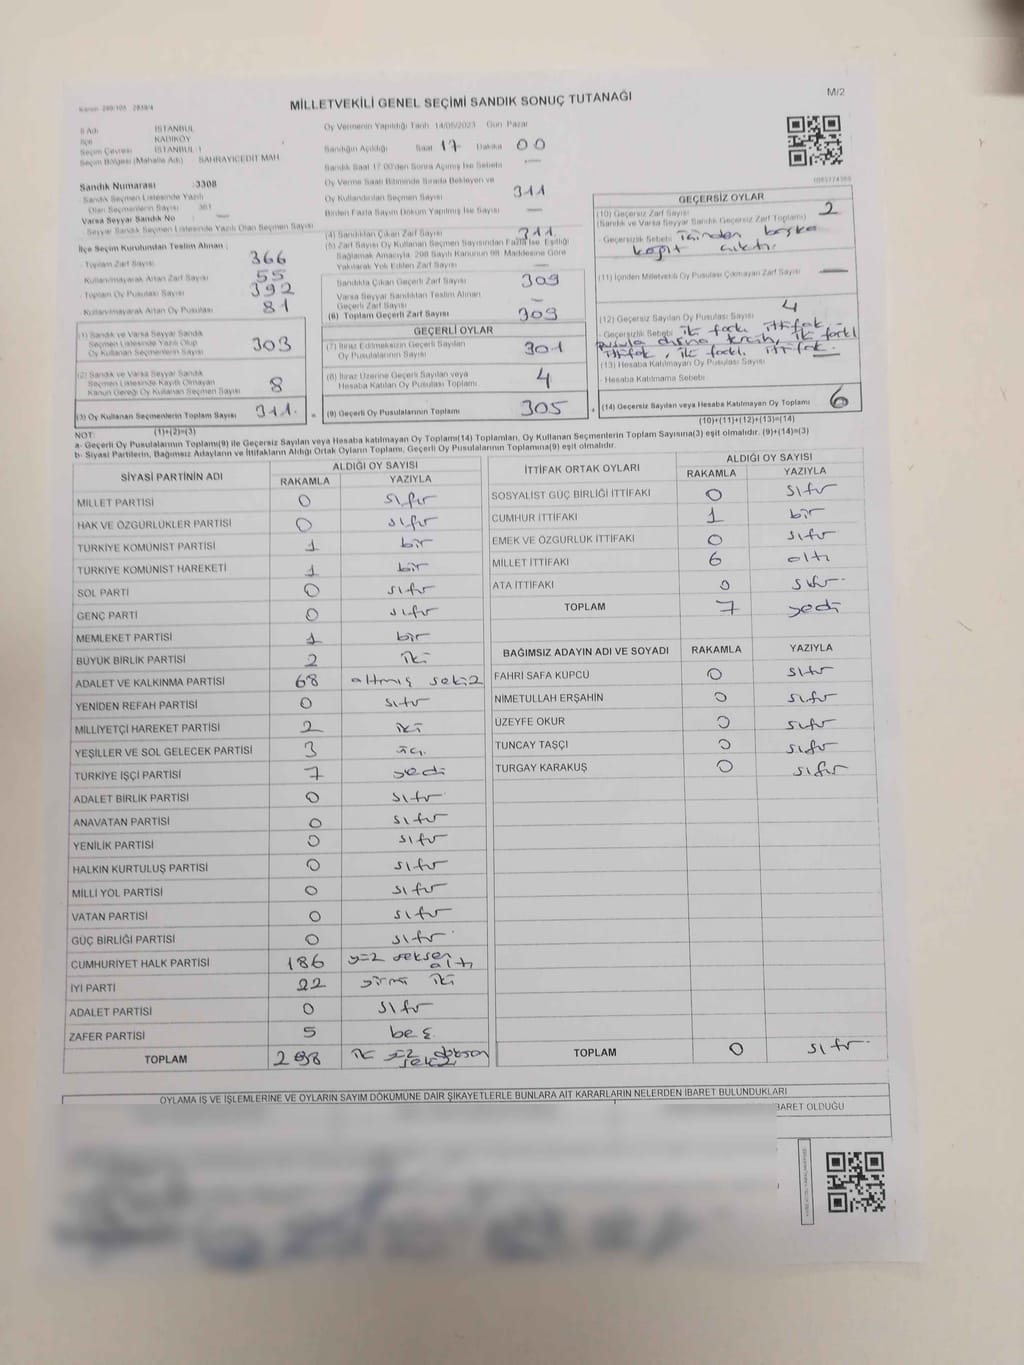 Kanun 298/105 2839/4
MİLLETVEKİLİ GENEL SEÇİMİ SANDIK SONUÇ TUTANAĞI
M/2
İl Adı İSTANBUL
İlçe KADIKÖY
Seçim Çevresi İSTANBUL 1
Seçim Bölgesi (Mahalle Adı) SAHRAYICEDİT MAH
Sandık Numarası :3308
- Sandık Seçmen Listesinde Yazılı
Olan Seçmenlerin Sayısı 361
Varsa Seyyar Sandık No —
- Seyyar Sandık Seçmen Listesinde Yazılı Olan Seçmen Sayısı
İlçe Seçim Kurulundan Teslim Alınan
- Toplam Zarf Sayısı 366
Kullanılmayarak Artan Zarf Sayısı 55
- Toplam Oy Pusulası Sayısı 392
- Kullanılmayarak Artan Oy Pusulası 81
(1) Sandık ve Varsa Seyyar Sandık
Seçmen Listesinde Yazılı Olup
Oy Kullanan Seçmenlerin Sayısı 303
(2) Sandık ve Varsa Seyyar Sandık
Seçmen Listesinde Kayıtlı Olmayan
Kanun Gereği Oy Kullanan Seçmen Sayısı 8
(3) Oy Kullanan Seçmenlerin Toplam Sayısı 311.
(1)+(2)=(3)
Oy Vermenin Yapıldığı Tarih 14/05/2023 Gün Pazar
Sandığın Açıldığı Saat 17 Dakika 00
Sandık Saat 17:00'den Sonra Açılmış İse Sebebi —
Oy Verme Saati Bitiminde Sırada Bekleyen ve
Oy Kullandırılan Seçmen Sayısı 311
Birden Fazla Sayım Döküm Yapılmış İse Sayısı —
(4) Sandıktan Çıkan Zarf Sayısı 311.
(5) Zarf Sayısı Oy Kullanan Seçmen Sayısından Fazla İse, Eşitliği
Sağlamak Amacıyla, 298 Sayılı Kanunun 98. Maddesine Göre
Yakılarak Yok Edilen Zarf Sayısı —
Sandıkta Çıkan Geçerli Zarf Sayısı 309
Varsa Seyyar Sandıktan Teslim Alınan
Geçerli Zarf Sayısı —
(6) Toplam Geçerli Zarf Sayısı 309
GEÇERLİ OYLAR
(7) İtiraz Edilmeksizin Geçerli Sayılan
Oy Pusulalarının Sayısı 301
(8) İtiraz Üzerine Geçerli Sayılan veya
Hesaba Katılan Oy Pusulası Toplamı 4
(9) Geçerli Oy Pusulalarının Toplamı 305
GEÇERSİZ OYLAR
(10) Geçersiz Zarf Sayısı 2
(Sandık ve Varsa Seyyar Sandık Geçersiz Zarf Toplamı)
- Geçersizlik Sebebi içinden başka
kağıt çıktı.
(11) İçinden Milletvekili Oy Pusulası Çıkmayan Zarf Sayısı —
(12) Geçersiz Sayılan Oy Pusulası Sayısı 4
- Geçersizlik Sebebi iki farklı ittifak
pusula dışına tercih, iki farklı
ittifak, iki farklı ittifak.
(13) Hesaba Katılmayan Oy Pusulası Sayısı —
- Hesaba Katılmama Sebebi
(14) Geçersiz Sayılan veya Hesaba Katılmayan Oy Toplamı 6
(10)+(11)+(12)+(13)=(14)
NOT:
a- Geçerli Oy Pusulalarının Toplamı(9) ile Geçersiz Sayılan veya Hesaba katılmayan Oy Toplamı(14) Toplamları, Oy Kullanan Seçmenlerin Toplam Sayısına(3) eşit olmalıdır. (9)+(14)=(3)
b- Siyasi Partilerin, Bağımsız Adayların ve İttifakların Aldığı Ortak Oyların Toplamı, Geçerli Oy Pusulalarının Toplamına(9) eşit olmalıdır.
SİYASİ PARTİNİN ADI ALDIĞI OY SAYISI
RAKAMLA YAZIYLA
MİLLET PARTİSİ 0 sıfır
HAK VE ÖZGÜRLÜKLER PARTİSİ 0 sıfır
TÜRKİYE KOMÜNİST PARTİSİ 1 bir
TÜRKİYE KOMÜNİST HAREKETİ 1 bir
SOL PARTİ 0 sıfır
GENÇ PARTİ 0 sıfır
MEMLEKET PARTİSİ 1 bir
BÜYÜK BİRLİK PARTİSİ 2 iki
ADALET VE KALKINMA PARTİSİ 68 altmış sekiz
YENİDEN REFAH PARTİSİ 0 sıfır
MİLLİYETÇİ HAREKET PARTİSİ 2 iki
YEŞİLLER VE SOL GELECEK PARTİSİ 3 üç.
TÜRKİYE İŞÇİ PARTİSİ 7 yedi
ADALET BİRLİK PARTİSİ 0 sıfır
ANAVATAN PARTİSİ 0 sıfır
YENİLİK PARTİSİ 0 sıfır
HALKIN KURTULUŞ PARTİSİ 0 sıfır
MİLLİ YOL PARTİSİ 0 sıfır
VATAN PARTİSİ 0 sıfır
GÜÇ BİRLİĞİ PARTİSİ 0 sıfır
CUMHURİYET HALK PARTİSİ 186 yüz seksen altı
İYİ PARTİ 22 yirmi iki
ADALET PARTİSİ 0 sıfır
ZAFER PARTİSİ 5 beş
TOPLAM 298 iki yüz doksan sekiz
İTTİFAK ORTAK OYLARI ALDIĞI OY SAYISI
RAKAMLA YAZIYLA
SOSYALİST GÜÇ BİRLİĞİ İTTİFAKI 0 sıfır
CUMHUR İTTİFAKI 1 bir
EMEK VE ÖZGÜRLÜK İTTİFAKI 0 sıfır
MİLLET İTTİFAKI 6 altı
ATA İTTİFAKI 0 sıfır
TOPLAM 7 yedi
BAĞIMSIZ ADAYIN ADI VE SOYADI RAKAMLA YAZIYLA
FAHRİ SAFA KÜPCÜ 0 sıfır
NİMETULLAH ERŞAHİN 0 sıfır
ÜZEYFE OKUR 0 sıfır
TUNCAY TAŞÇI 0 sıfır
TURGAY KARAKUŞ 0 sıfır
TOPLAM 0 sıfır
OYLAMA İŞ VE İŞLEMLERİNE VE OYLARIN SAYIM DÖKÜMÜNE DAİR ŞİKAYETLERLE BUNLARA AİT KARARLARIN NELERDEN İBARET BULUNDUKLARI
BARET OLDUĞU